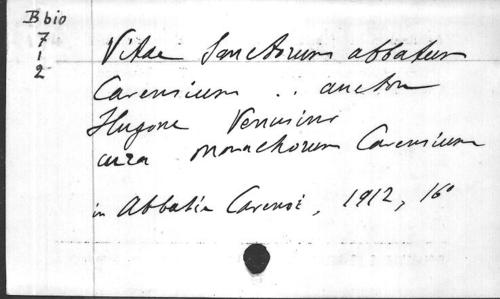 B bio
7
1
2
Vitae Sanctorum abbatum
Cavensium .. auctore
Hugone Venusino
cura monachorum Cavensium
in Abbatia Cavensi, 1912, 16°